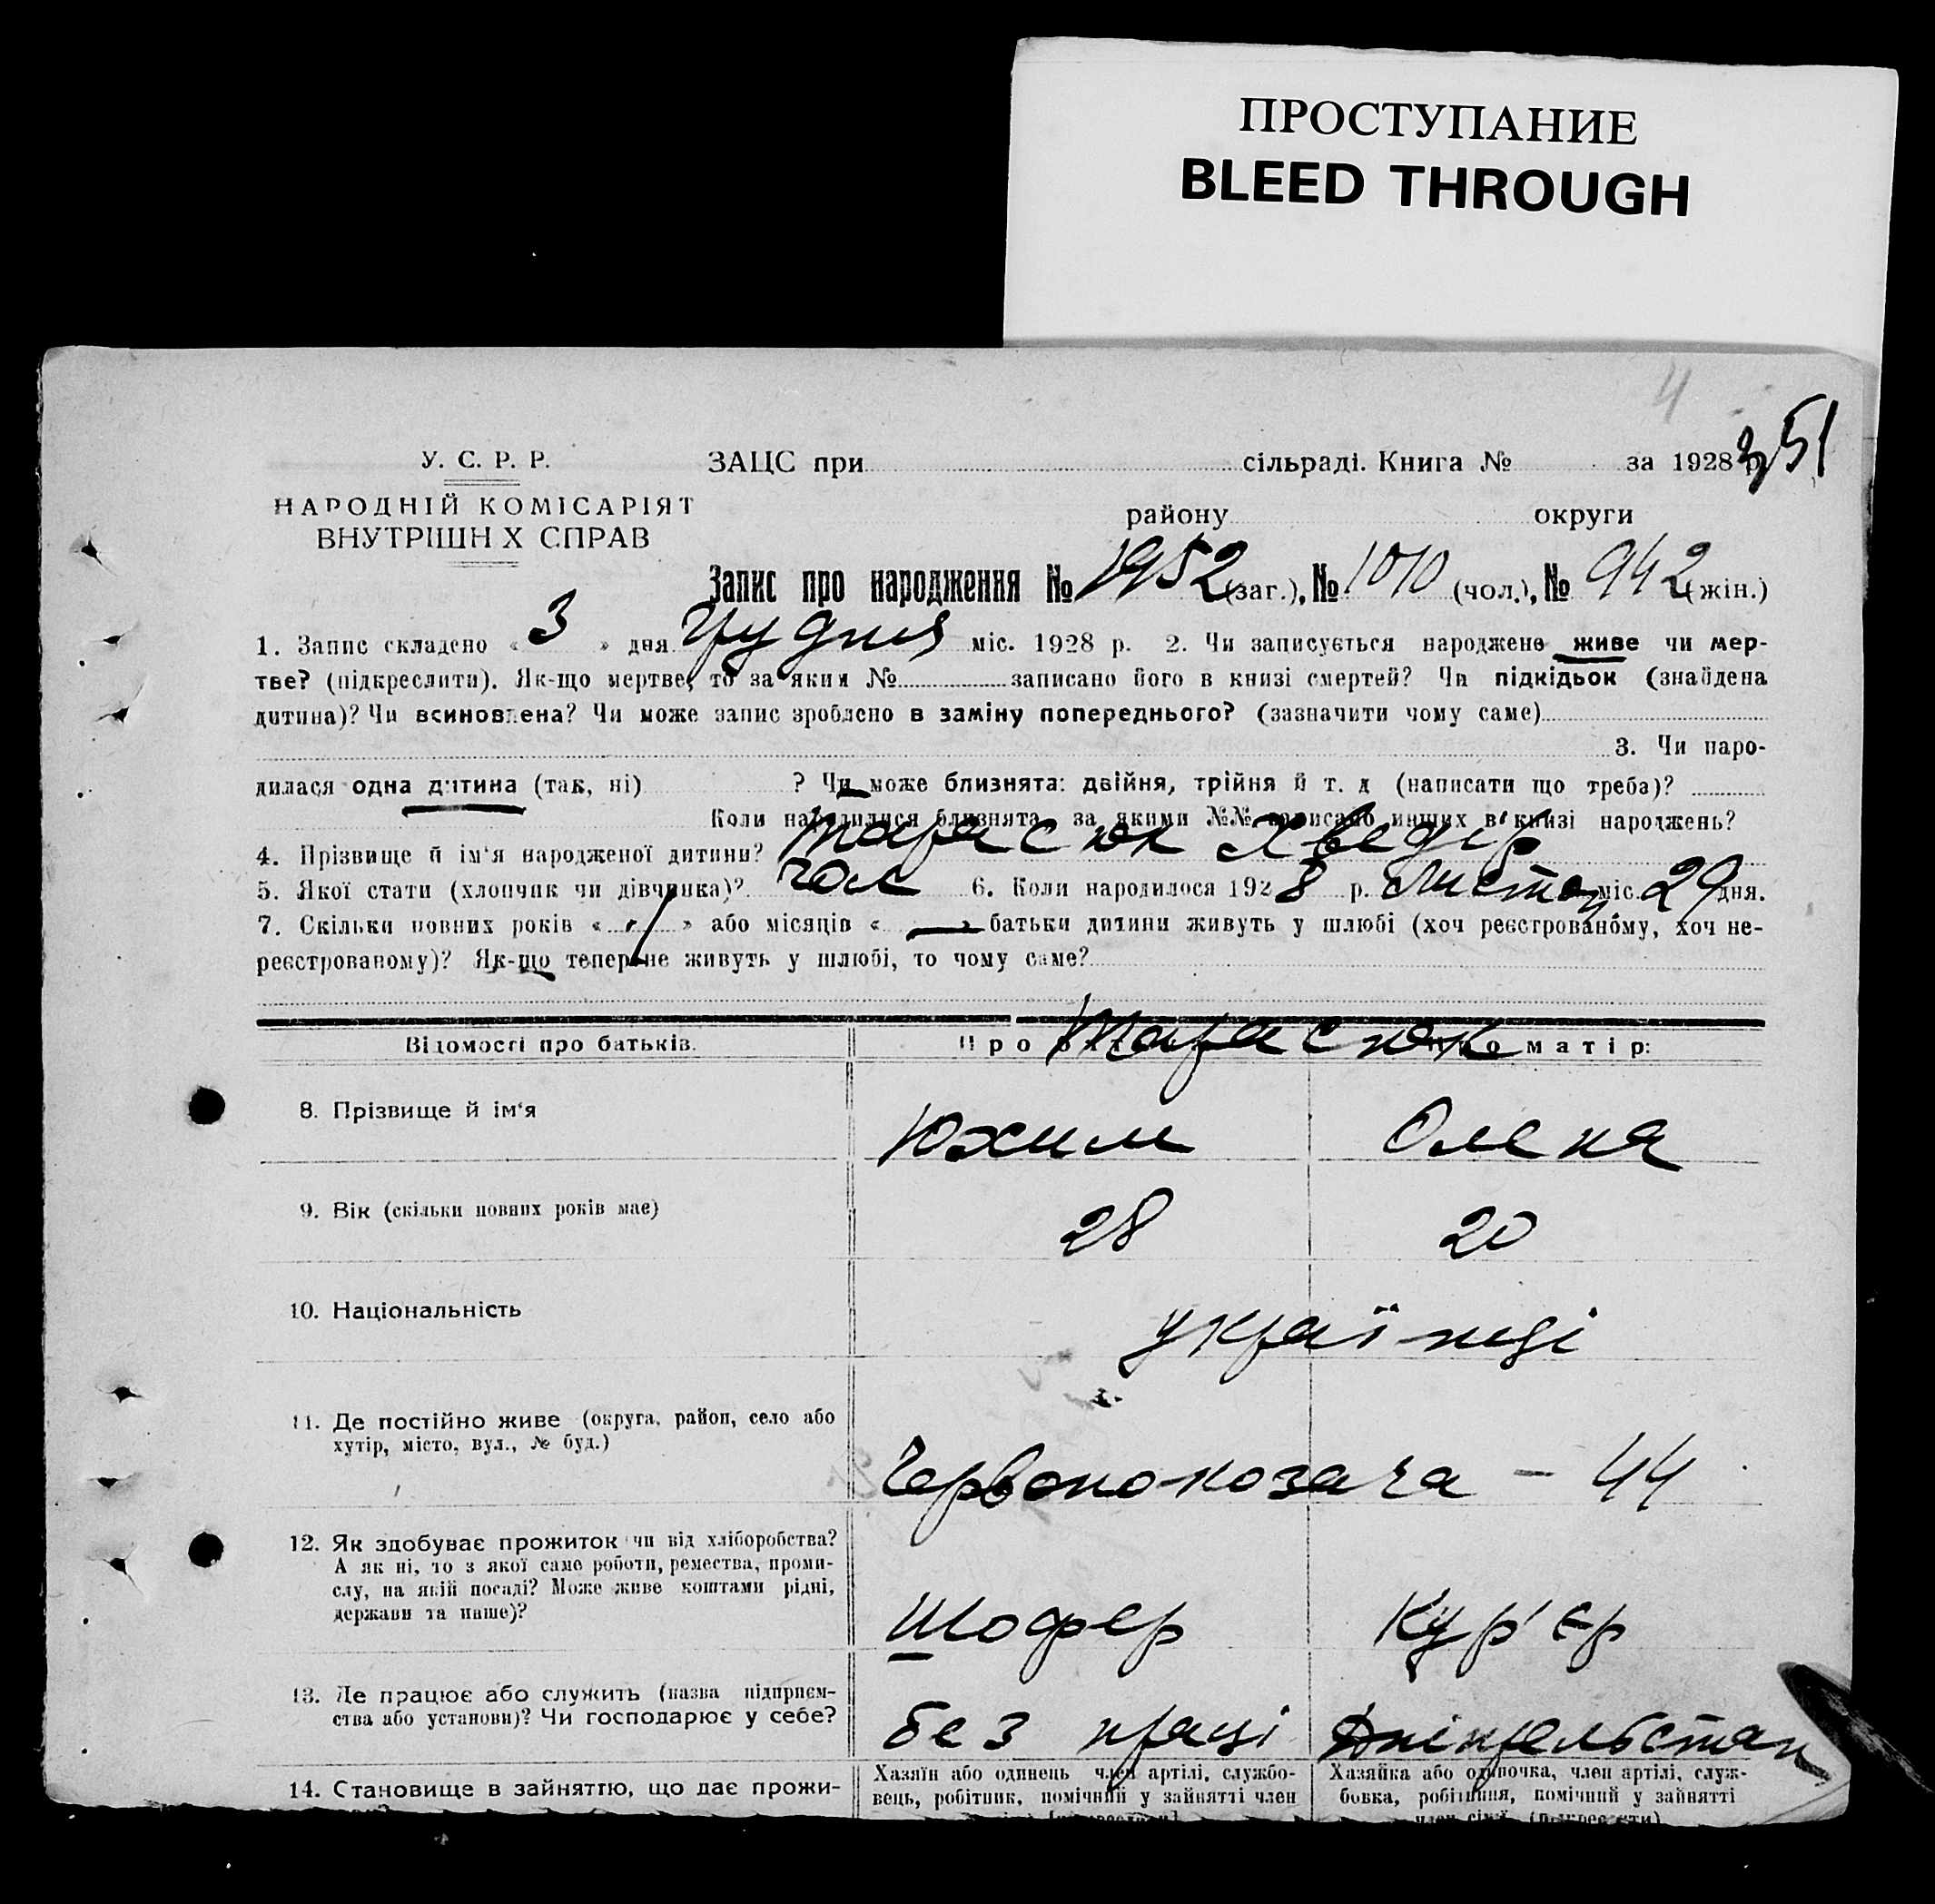 ПРОСТУПАНИЕ
BLEED THROUGH
4
351
У. С. Р. Р.
НАРОДНІЙ КОМІСАРІЯТ
ВНУТРІШН Х СПРАВ
ЗАЦС при сільраді. Книга № за 1928 р.
району округи
Запис про народження № 1952 (заг.), № 1010 (чол.), № 942 (жін.)
1. Запис складено « 3 » дня Грудня міс. 1928 р. 2. Чи записується народжене живе чи мер-
тве? (підкреслити). Як-що мертве, то за яким № записано його в книзі смертей? Чи підкідьок (знайдена
дитина)? Чи всиновлена? Чи може запис зроблено в заміну попереднього? (зазначити чому саме)
3. Чи наро-
дилася одна дитина (так, ні) ? Чи може близнята: двійня, трійня й т. д (написати що треба)?
Коли народилися близнята, за якими №№ записано инших в книзі народжень?
4. Прізвище й ім'я народженої дитини? Тарасюк Хведір
5. Якої стати (хлопчик чи дівчинка)? чол 6. Коли народилося 1928 р. Листоп. міс. 29 дня.
7. Скільки повних років « 1 » або місяців « — » батьки дитини живуть у шлюбі (хоч реєстрованому, хоч не-
реєстрованому)? Як-що тепер не живуть у шлюбі, то чому саме?
Відомості про батьків. Про матір:
Тарасюк
8. Прізвище й ім'я Юхим Олена
9. Вік (скільки повних років має) 28 20
10. Національність українці
11. Де постійно живе (округа, район, село або
хутір, місто, вул., № буд.)
Червонокозача – 44
12. Як здобуває прожиток чи від хліборобства?
А як ні, то з якої саме роботи, ремества, проми-
слу, на якій посаді? Може живе коштами рідні,
держави та инше)?
Шофер Кур'єр
13. Де працює або служить (назва підприєм-
ства або установи)? Чи господарює у себе?
без праці
14. Становище в зайняттю, що дає прожи-
Хазяїн або одинець член артілі, службо-
вець, робітник, помічний у зайнятті член
Хазяйка або одиночка, член артілі, служ-
бовка, робітниця, помічний у зайнятті